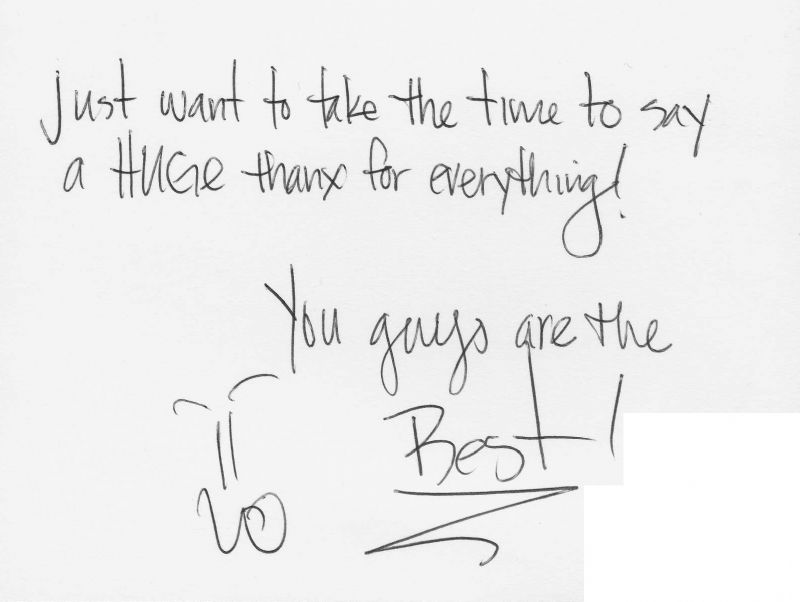 Just want to take the time to say
a HUGE thanx for everything!
You guys are the
Best!